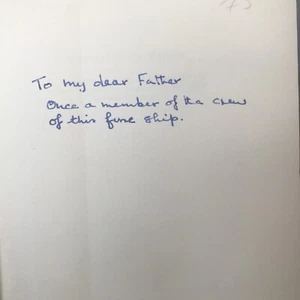 To my dear Father
Once a member of the crew
of this fine ship.